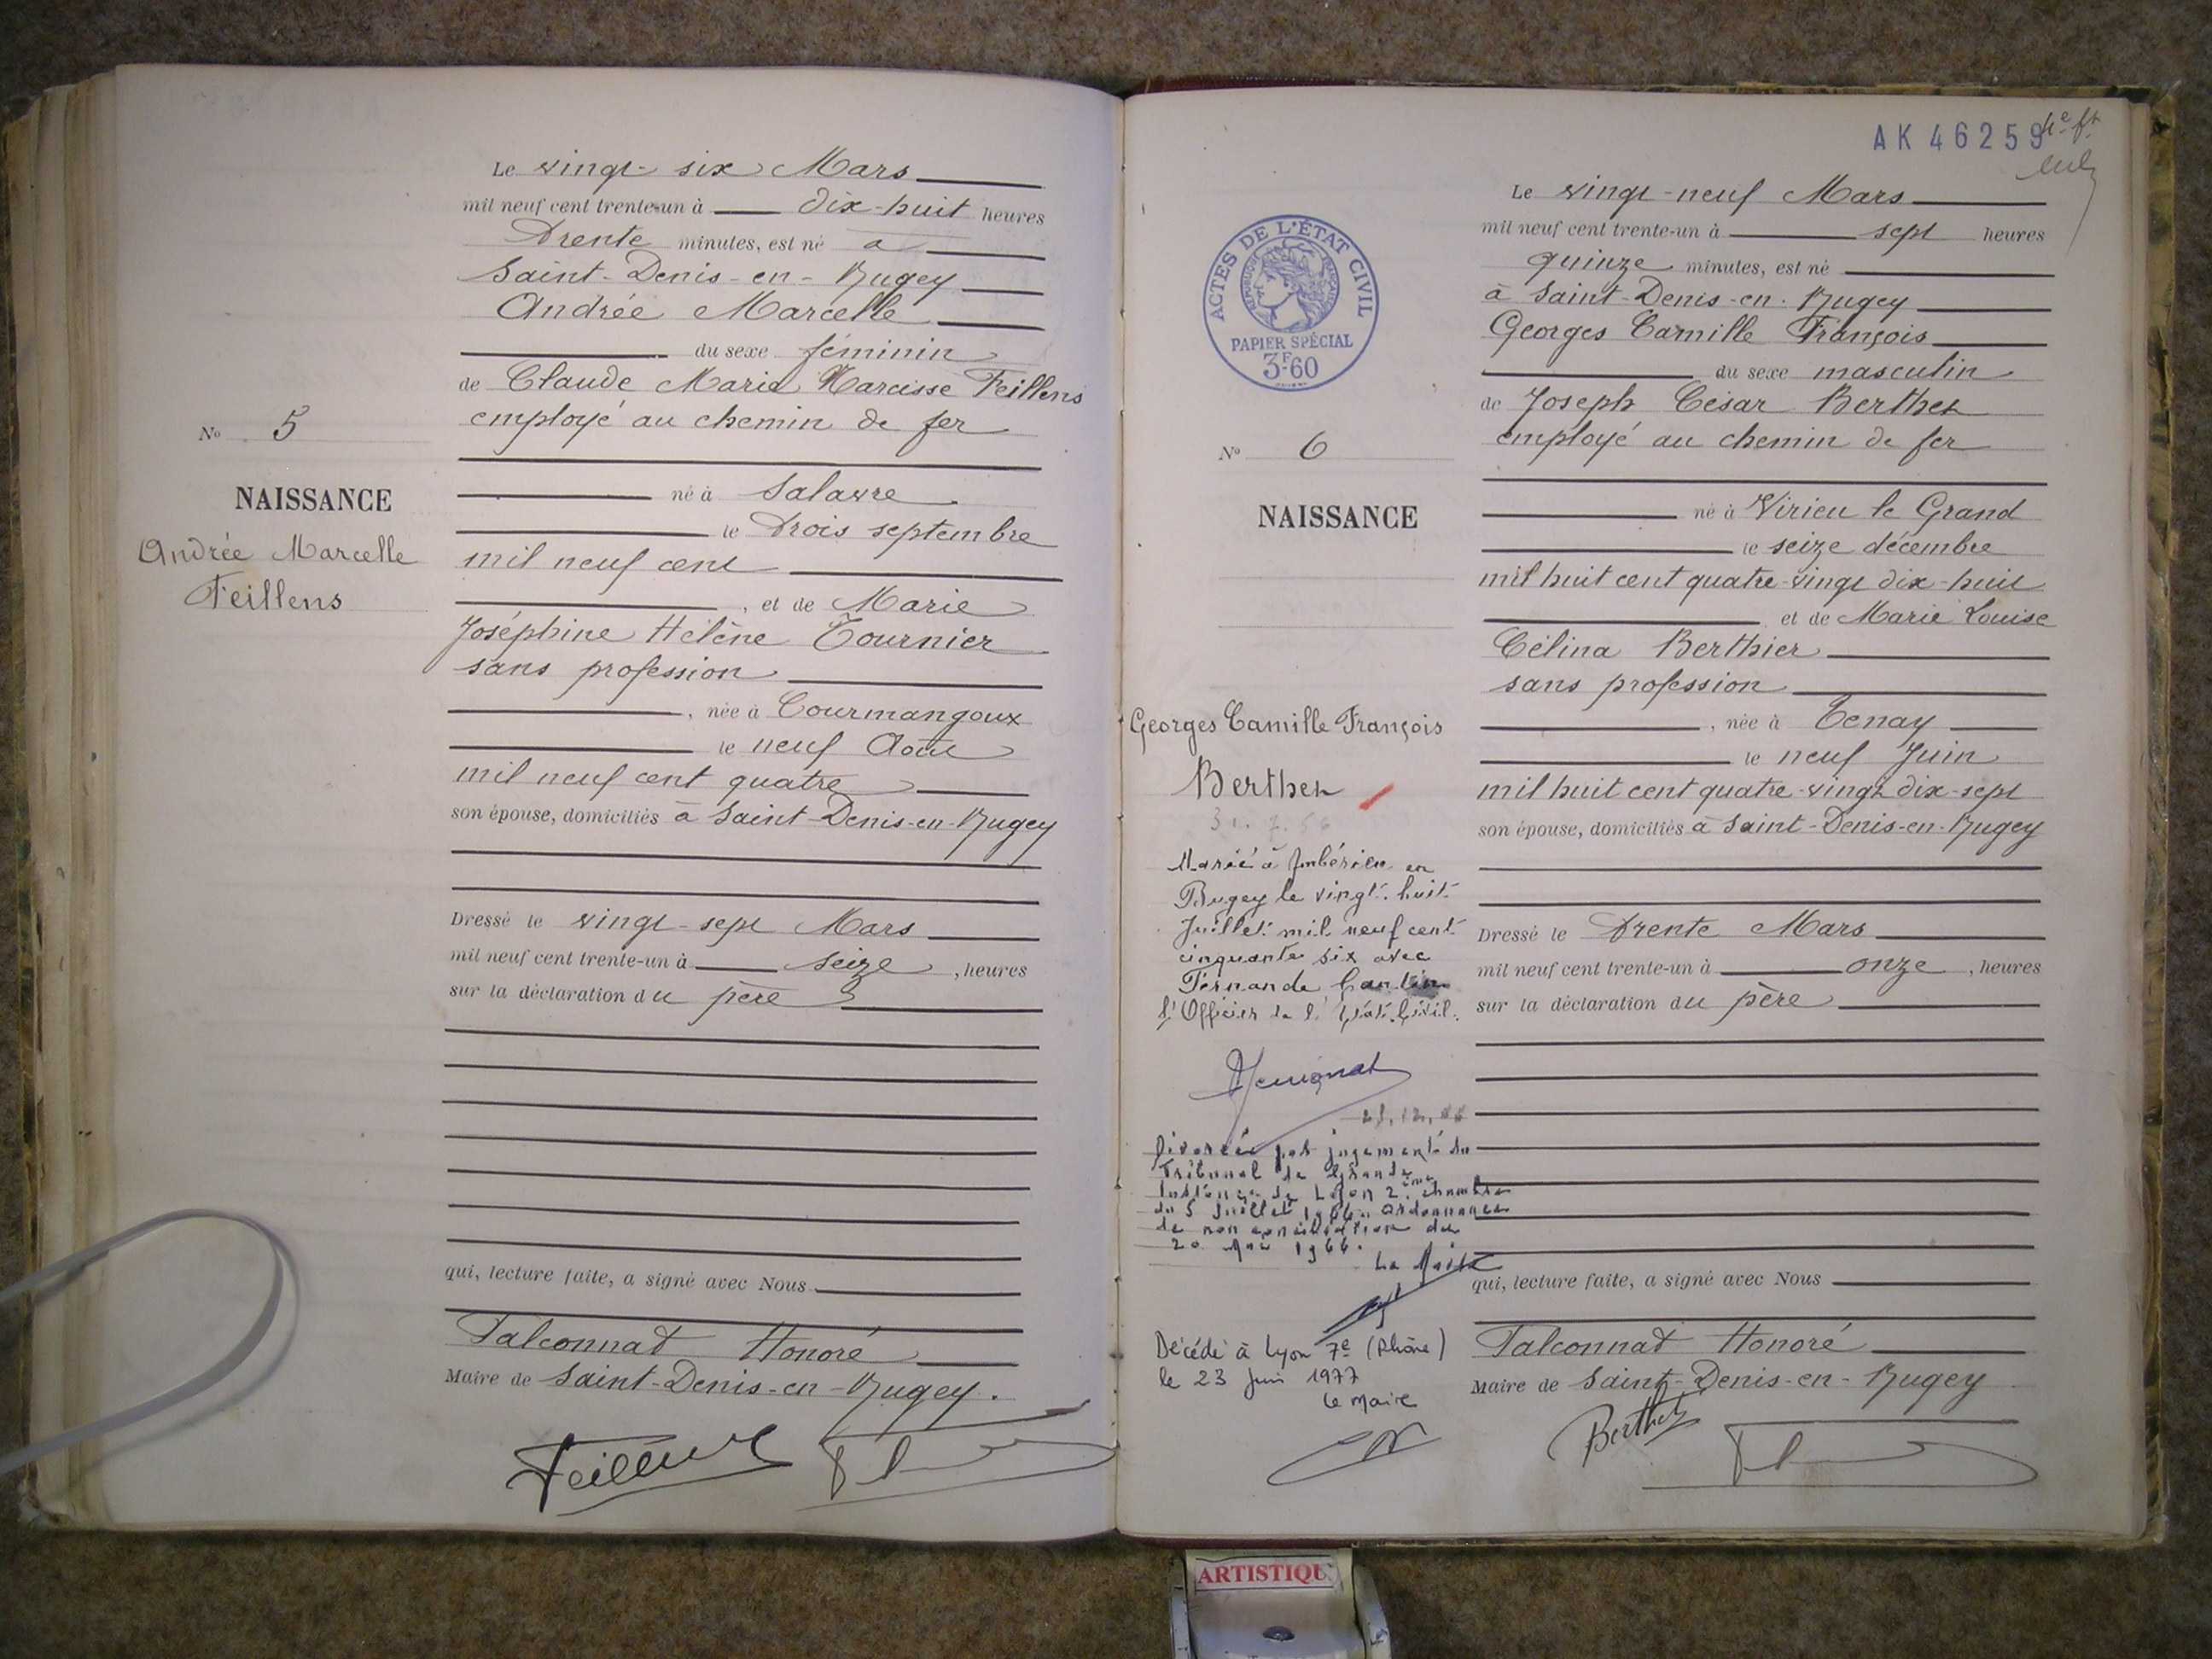 Le vingt-six Mars
mil neuf cent trente-un à dix-huit heures
Trente minutes, est né à
Saint-Denis-en-Bugey
Andrée Marcelle
du sexe féminin
de Claude Marie Narcisse Feillens
employé au chemin de fer
né à Salavre
le Trois septembre
mil neuf cent
, et de Marie
Joséphine Hélène Tournier
sans profession
, née à Courmangoux
le neuf Août
mil neuf cent quatre
son épouse, domiciliés à Saint-Denis-en-Bugey
Dressé le vingt-sept Mars
mil neuf cent trente-un à seize , heures
sur la déclaration du père
qui, lecture faite, a signé avec Nous
Falconnat Honoré
Maire de Saint-Denis-en-Bugey.
Feillens
No 5
NAISSANCE
Andrée Marcelle
Feillens
AK 46259
ACTES DE L'ÉTAT CIVIL
RÉPUBLIQUE FRANÇAISE
PAPIER SPÉCIAL
3F60
No 6
NAISSANCE
Georges Camille François
Berthet
Marié à Ambérieu en
Bugey le vingt-huit
Juillet mil neuf cent
cinquante six avec
Fernande
L'Officier de l'État Civil.
Divorcé par jugement du
Tribunal de Grande
Instance de Lyon 2ème chambre
du 5 Juillet 1966. Ordonnance
de non conciliation du
20 1966.
Le Maire
Décédé à Lyon 7e (Rhône)
le 23 Juin 1977
Le Maire
Le vingt-neuf Mars
mil neuf cent trente-un à sept heures
quinze minutes, est né
à Saint-Denis-en-Bugey
Georges Camille François
du sexe masculin
de Joseph César Berthet
employé au chemin de fer
né à Virieu le Grand
le seize décembre
mil huit cent quatre-vingt dix-huit
et de Marie Louise
Célina Berthier
sans profession
, née à Tenay
le neuf Juin
mil huit cent quatre-vingt dix-sept
son épouse, domiciliés à Saint-Denis-en-Bugey
Dressé le Trente Mars
mil neuf cent trente-un à onze , heures
sur la déclaration du père
qui, lecture faite, a signé avec Nous
Falconnat Honoré
Maire de Saint-Denis-en-Bugey
Berthet
ARTISTIQU